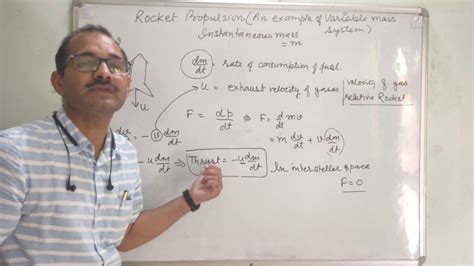 Rocket Poopulsion (An example of Variable mass System)
Instantaneous mass = m
dm/dt = rate of consumption of fuel.
u = exhaust velocity of gases | velocity of gas relative Rocket
u
F = dp/dt ⇒ F = d/dt mv
= m dv/dt + v dm/dt
dv = - v dm/dt
- u dm/dt ⇒ Thrust = - u dm/dt
In interstellar space
F = 0